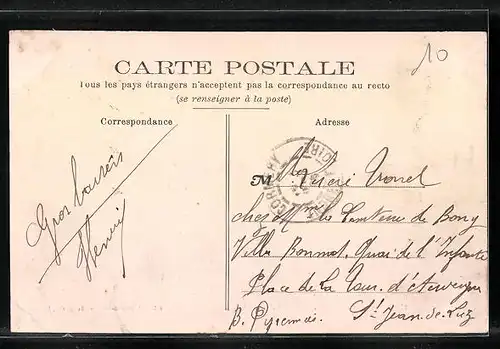 10
CARTE POSTALE
Tous les pays étrangers n'acceptent pas la correspondance au recto
(se renseigner à la poste)
Correspondance
Adresse
Gros baisers
Henri
M
chez Mme la Comtesse de Bony
Villa Bonnat, Quai de l'Infante
Place de la Tour d'Auvergne
St Jean-de-Luz
B. Pyrénées